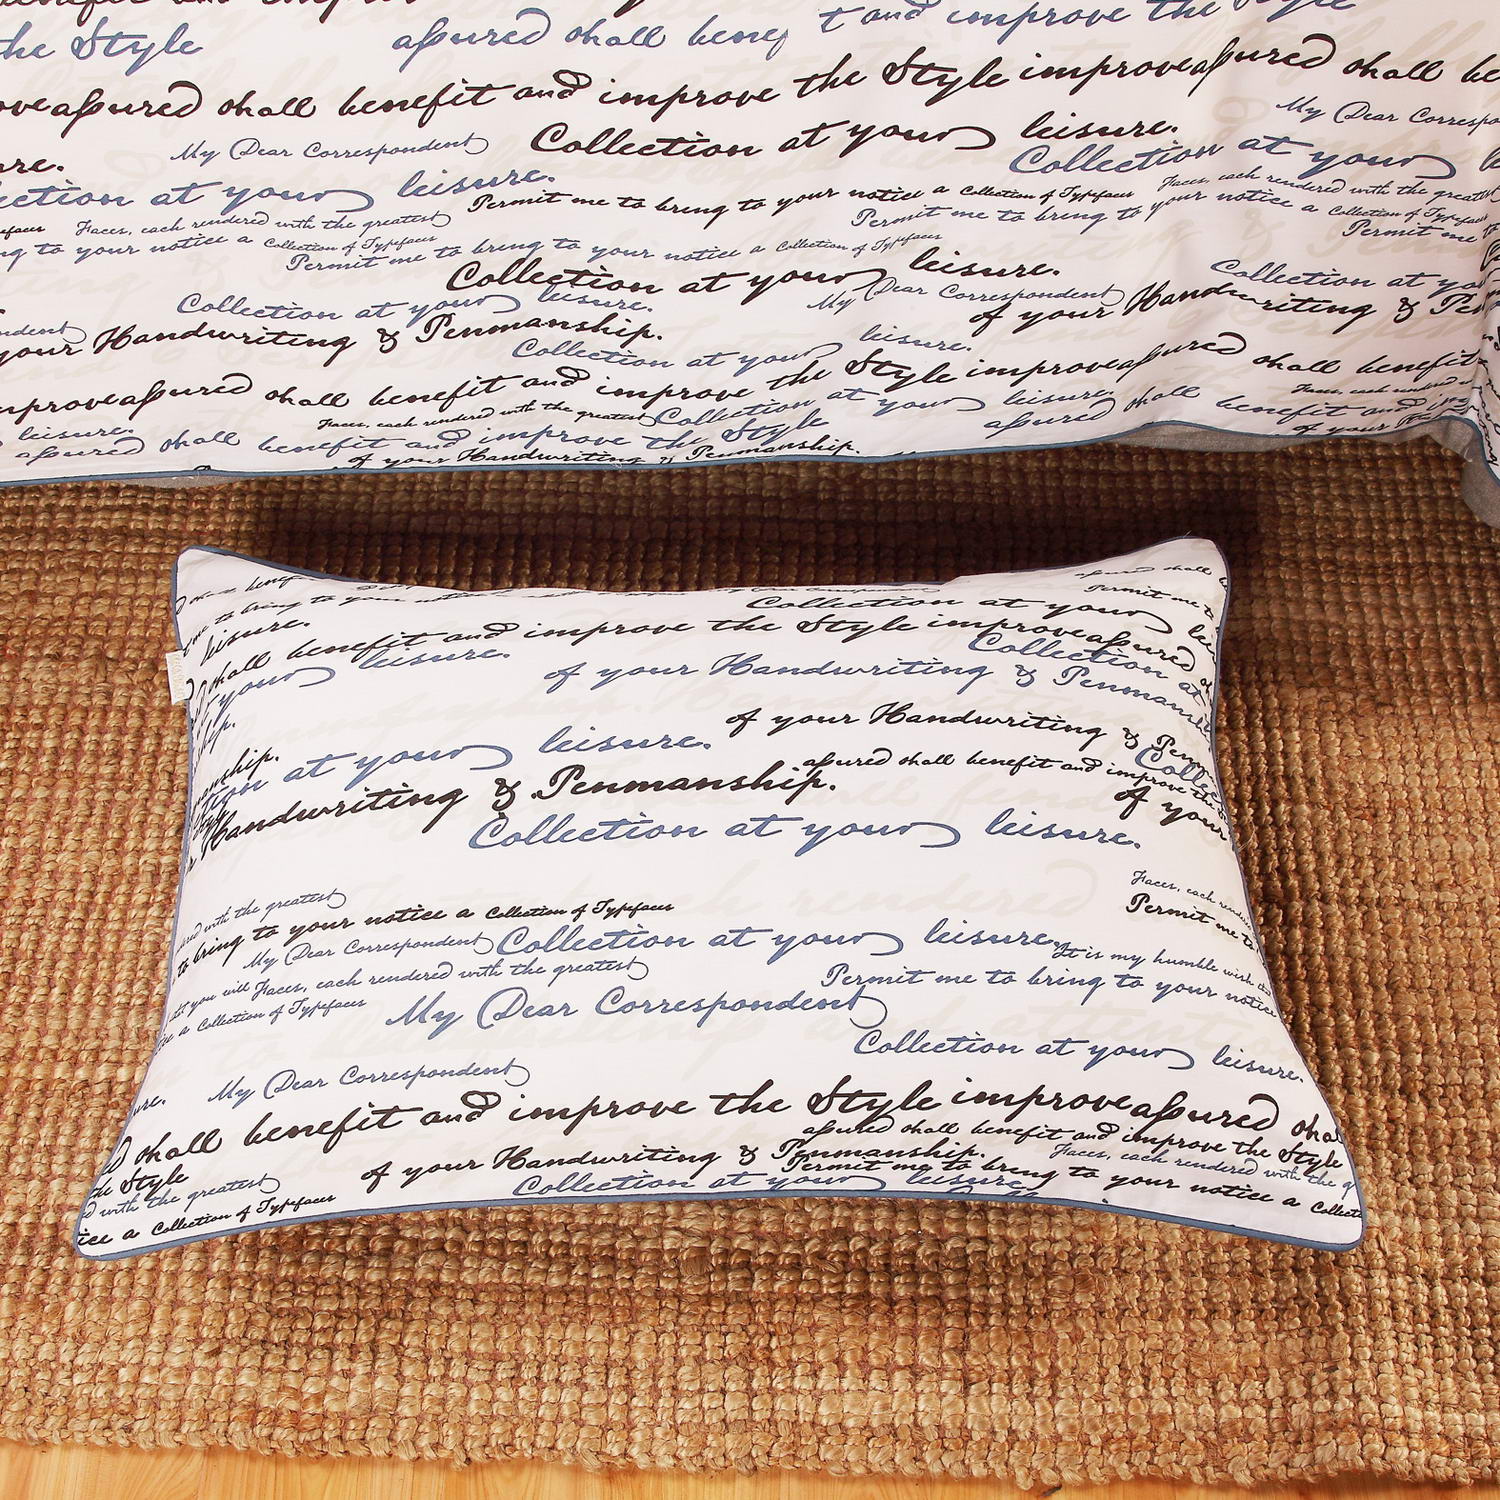 the Style assured shall benef t and improve the Style
ove assured shall benefit and improve the Style improve assured shall be
My Dear Correspondent Collection at your leisure. My Dear Correspo
ection at your leisure. Collection at your
Faces, each rendered with the greatest Permit me to bring to your notice a Collection of Typefaces Faces, each rendered with the greatest
ng to your notice a Collection of Typefaces Permit me to bring to your notice a Collection of Typefaces
Permit me to bring to your notice a Collection of Typefaces Permit me
Collection at your leisure. Collection at yo
Collection at your leisure. My Dear Correspondent of your Handwriting & Pe
your Handwriting & Penmanship.
Collection at your leisure.
improve assured shall benefit and improve the Style improve assured shall benefit
Faces, each rendered with the greatest Collection at your leisure.
leisure. assured shall benefit and improve the Style assured shall benefit and
of your Handwriting & Penmanship.
assured shall
to bring to your Permit me t
leisure. Collection at your
shall benefit and improve the Style improve assured
your leisure. of your Handwriting & Penmanshi
Collection at
of your Handwriting &
at your leisure. assured shall benefit and improve the
Handwriting & Penmanship. of your
Collection at your leisure.
with the greatest Faces, each
to bring to your notice a Collection of Typefaces Permit me to
My Dear Correspondent Collection at your leisure. It is my humble wish
you will Faces, each rendered with the greatest Permit me to bring to your notice
a Collection of Typefaces My Dear Correspondent
Collection at your leisure.
My Dear Correspondent
shall benefit and improve the Style improve assured shal
assured shall benefit and improve the Style
Style of your Handwriting & Penmanship. Faces, each rendered with the g
with the greatest Collection at your leisure. Permit me to bring to your notice a Collecti
a Collection of Typefaces